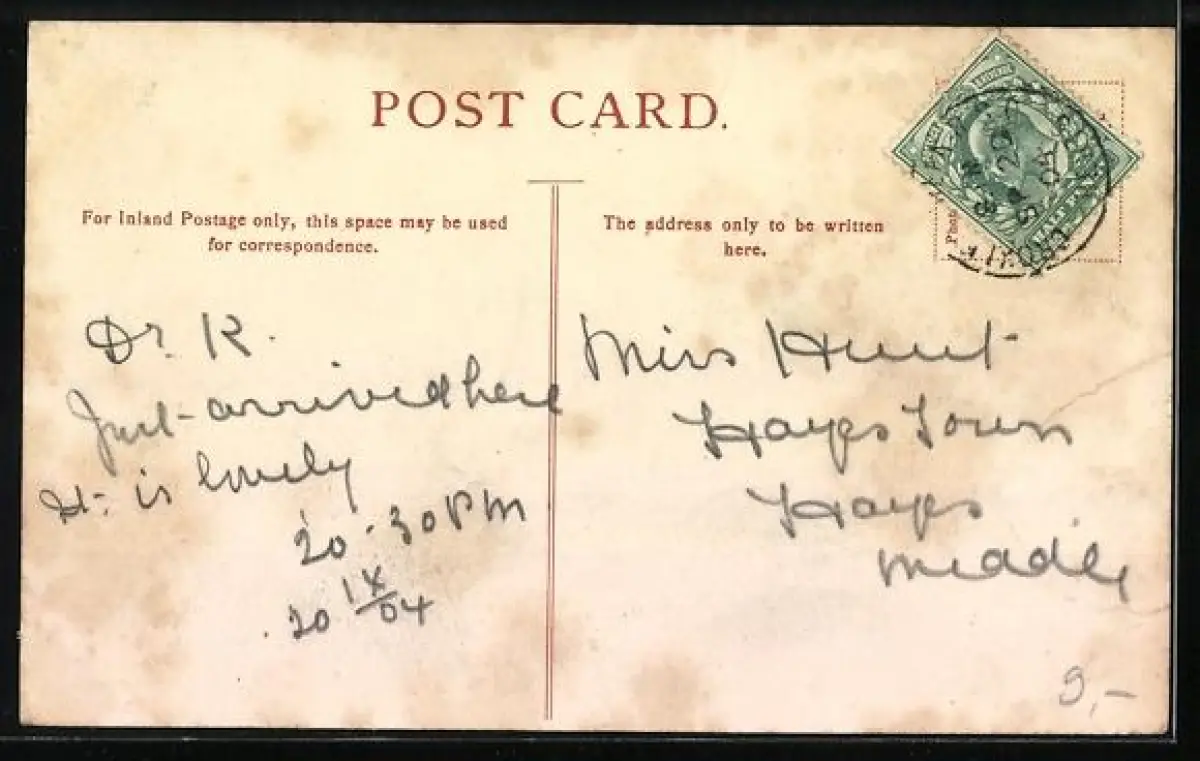 POST CARD.
For Inland Postage only, this space may be used
for correspondence.
The address only to be written
here.
Photo
Dr. K.
Just arrived here
It is lovely
20.30 PM
20 IX/04
Miss Hunt
Hayes Town
Hayes
Middx
9,-